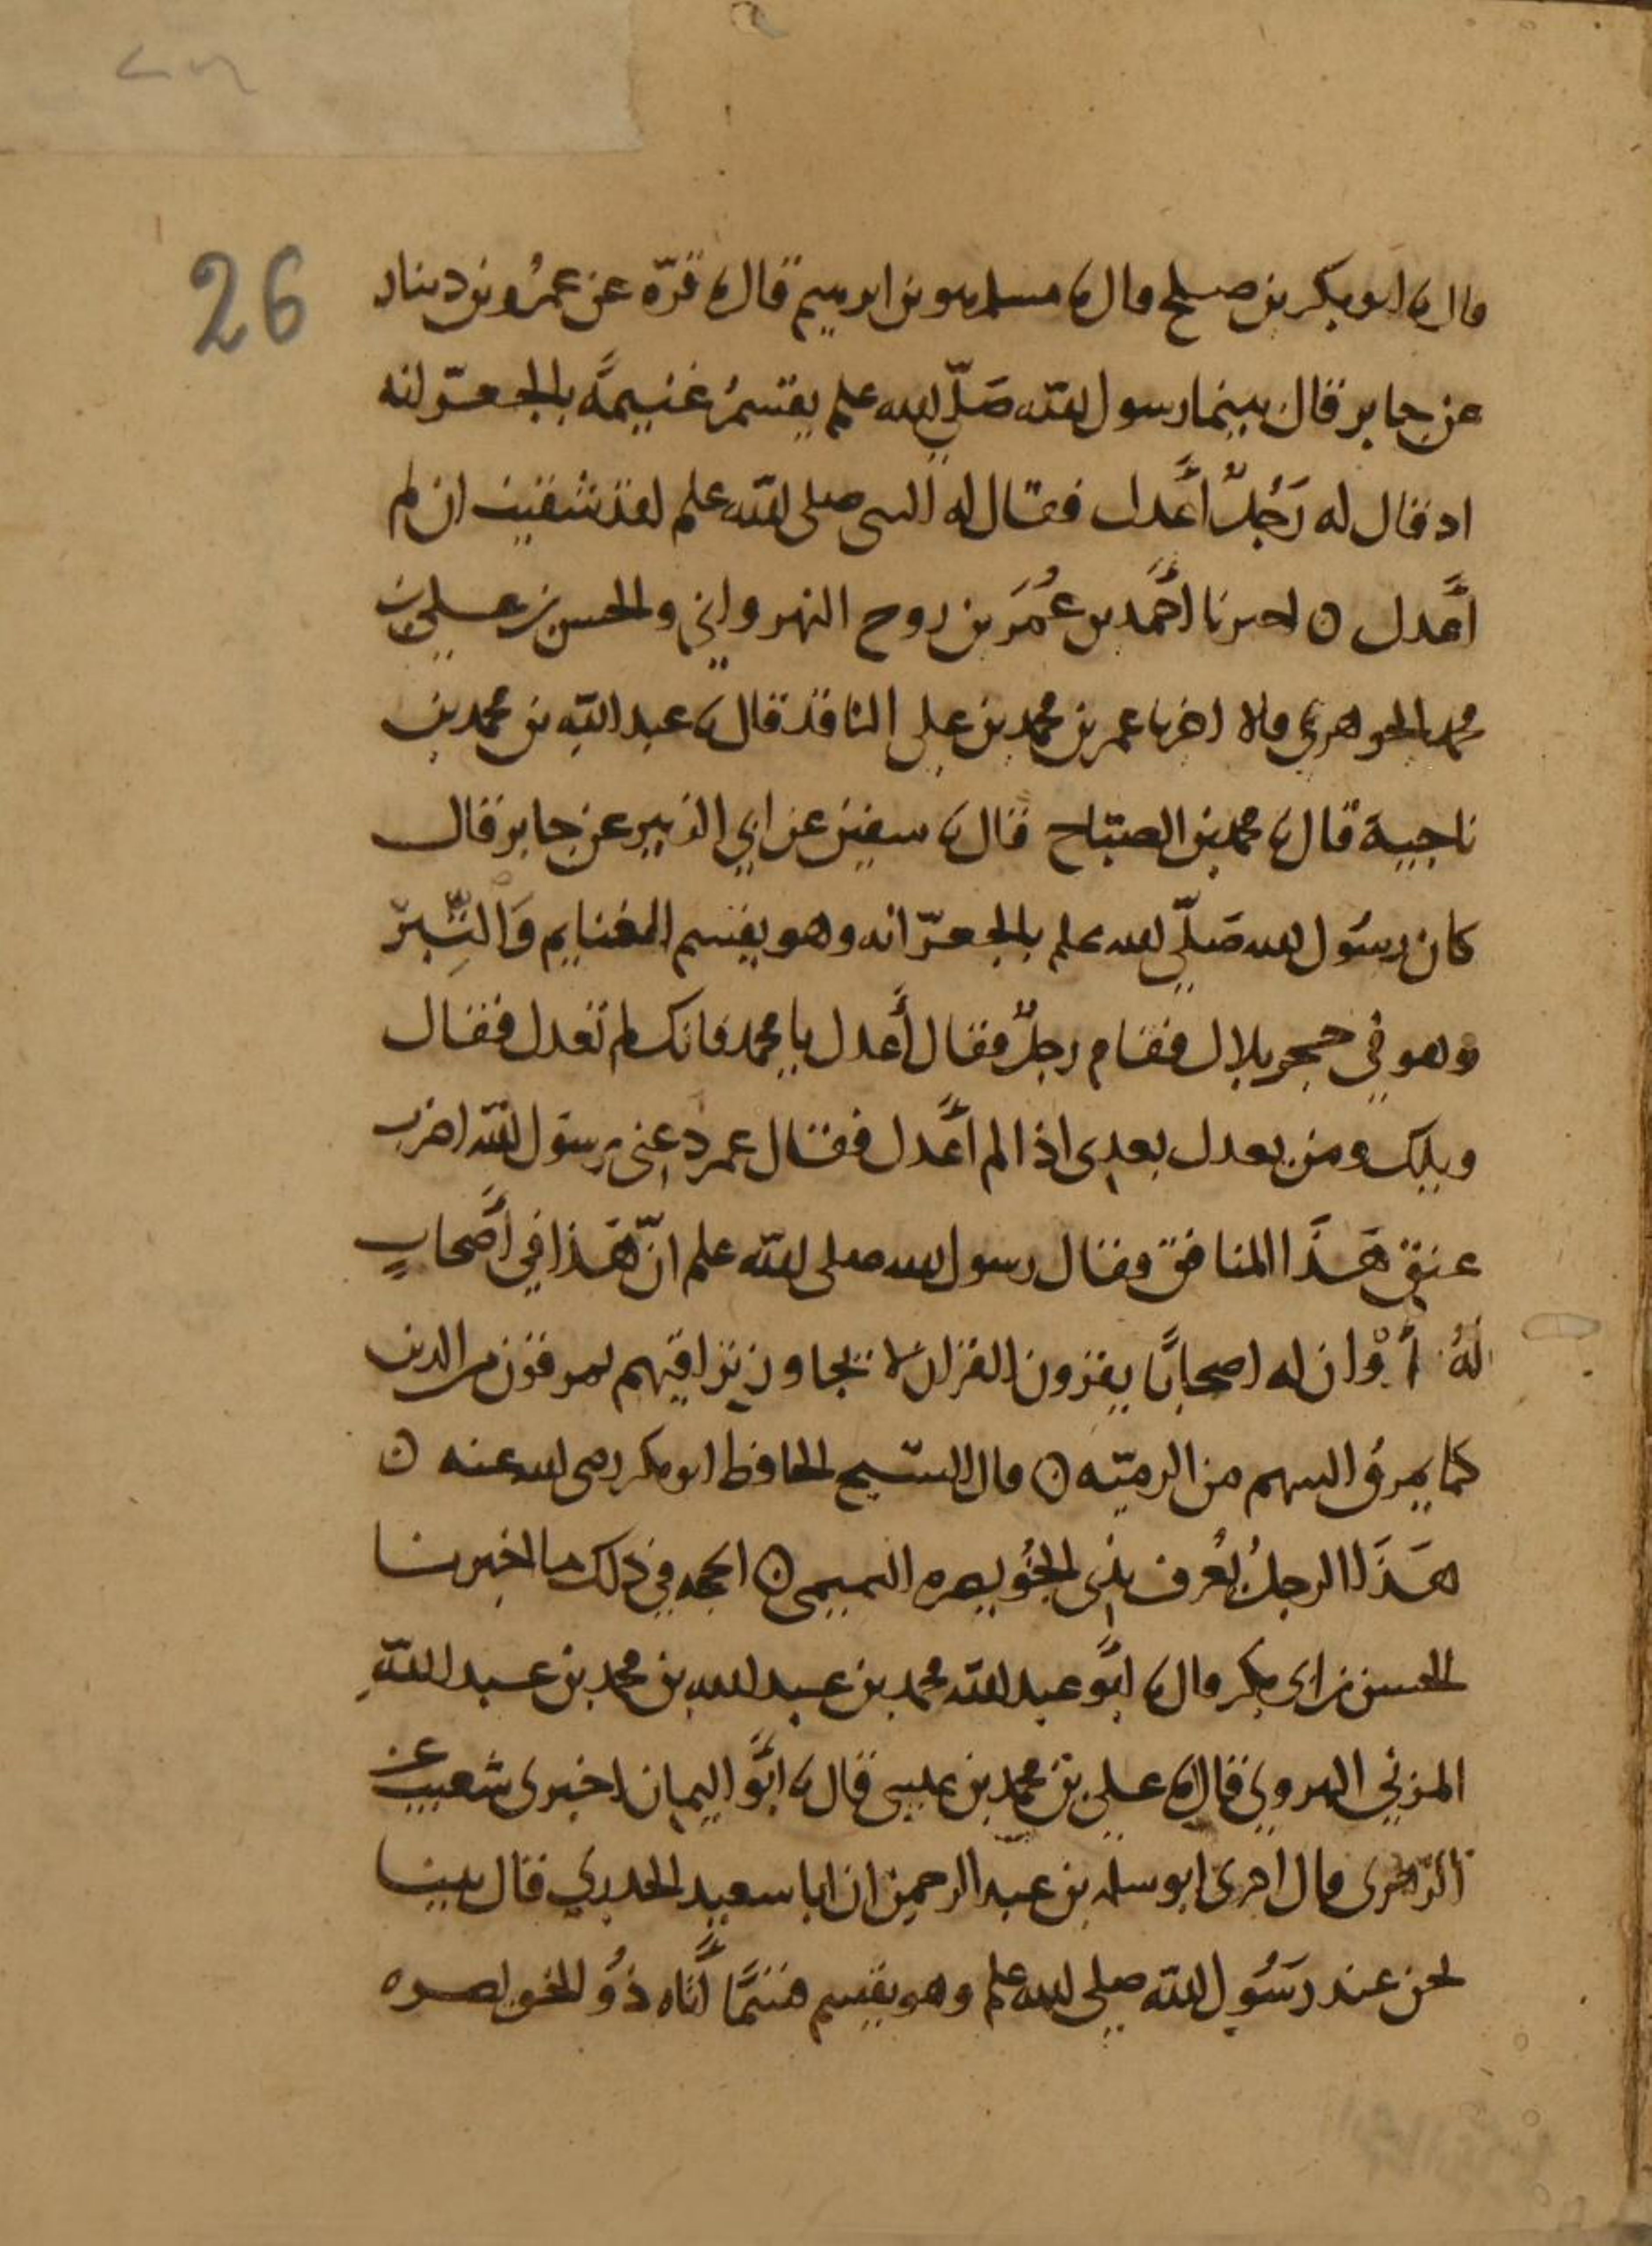 26
قال نا ابو بكر بن صلح قال نا مسلم هو بن ابرهيم قال نا قرّة عن عمرو بن دينار
عن جابر قال بينما رسول الله صَلّى الله علم يقسمُ غنيمةً بالجعرّانه
اذ قال له رَجُلٌ اعدل فقال له النبى صلى الله علم لقد شقيت ان لم
اعدل ه اخبرنا احمد بن عُمَر بن روح النهرواني والحسن بن علي بن
محمد الجوهري قالا اخبرنا عمر بن محمد بن علي الناقد قال نا عبد الله بن محمد بن
ناجية قال نا محمد بن الصبّاح قال نا سفين عن ابي الزبير عن جابر قال
كان رسُول الله صَلّى الله علم بالجعرّانه وهو يقسم المغنايم وَالتِّبرْ
وهو في حجر بلال فقام رجلٌ فقال أعدل يا محمد فانك لم تعدل فقال
ويلك ومن يعدل بعدى اذا لم أعدل فقال عمر دعنى يرسول الله اضرب
عنق هَذا المنافق فقال رسول الله صلى الله علم انّ هَذا في أصحابٍ
لهُ أوْ ان له اصحابًا يقرون القران لا يجاوز تراقيهم يمرقون من الدين
كما يمرقُ السهم من الرميّه ه قال الشيخ الحافظ ابو بكر رضى الله عنه ه
هَذَا الرجلُ يُعرف بذى الخُويصره التميمى ه الحجه في ذلك ما اخبرنا
الحسن بن ابى بكر قال نا ابُو عبد الله محمد بن عبد الله بن محمد بن عبد اللهِ
المزني الهروي قال نا علي بن محمد بن عيسى قال نا ابُو اليمان اخبرنى شعيب عن
الزّهرى قال اخبرنى ابو سلمه بن عبد الرحمن ان ابا سعيد الخدري قال بينا
نحن عند رَسُول الله صلى الله علم وهو يقسم قسمًا أتاه ذُو الخويصره